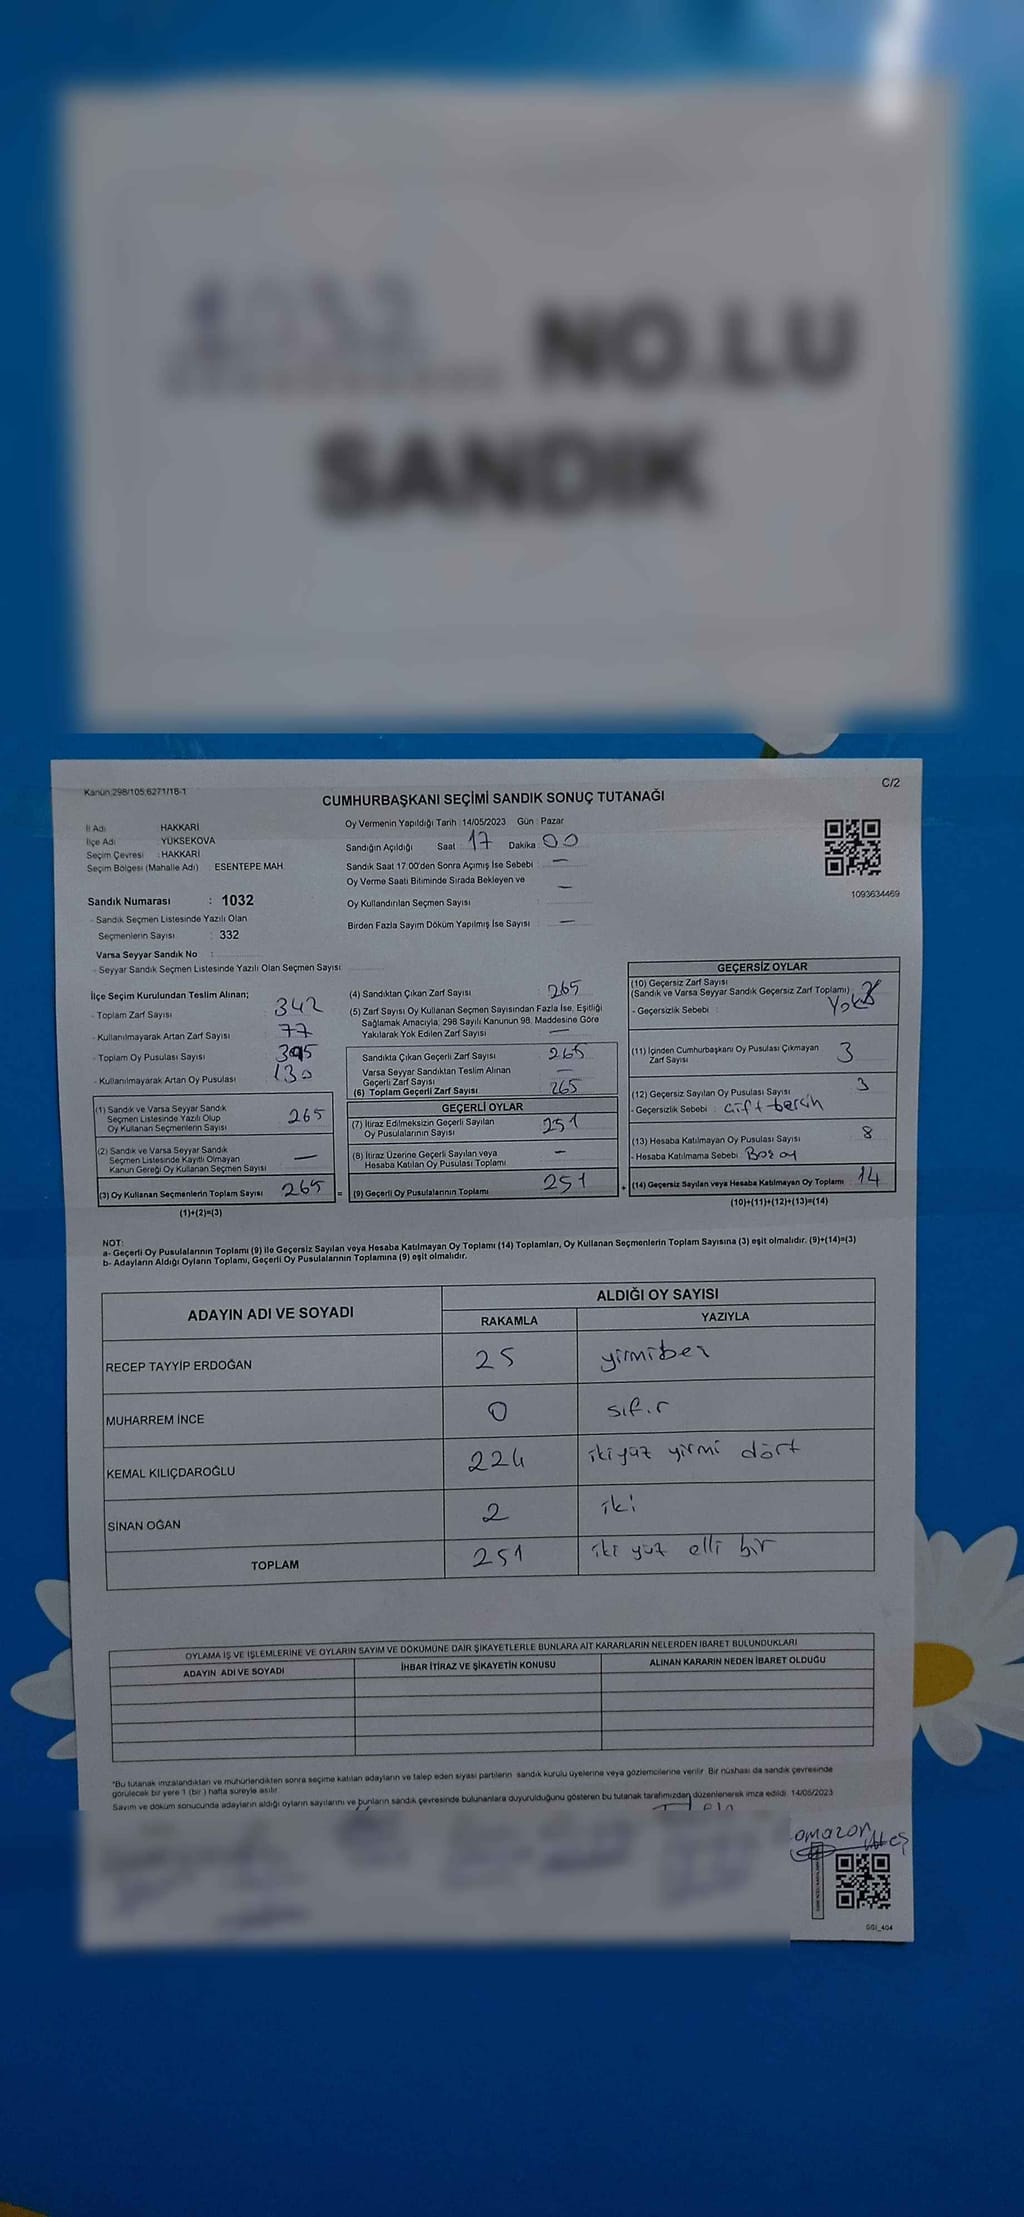 1032 NO.LU
SANDIK
Kanun:298/105,6271/18-1
C/2
CUMHURBAŞKANI SEÇİMİ SANDIK SONUÇ TUTANAĞI
İl Adı : HAKKARİ
İlçe Adı : YÜKSEKOVA
Seçim Çevresi : HAKKARİ
Seçim Bölgesi (Mahalle Adı) ESENTEPE MAH.
Sandık Numarası : 1032
- Sandık Seçmen Listesinde Yazılı Olan
Seçmenlerin Sayısı : 332
Varsa Seyyar Sandık No :
- Seyyar Sandık Seçmen Listesinde Yazılı Olan Seçmen Sayısı
Oy Vermenin Yapıldığı Tarih 14/05/2023 Gün : Pazar
Sandığın Açıldığı Saat 17 Dakika 00
Sandık Saat 17:00'den Sonra Açımış İse Sebebi : —
Oy Verme Saati Bitiminde Sırada Bekleyen ve
Oy Kullandırılan Seçmen Sayısı : —
Birden Fazla Sayım Döküm Yapılmış İse Sayısı : —
1093634469
İlçe Seçim Kurulundan Teslim Alınan;
- Toplam Zarf Sayısı 342
- Kullanılmayarak Artan Zarf Sayısı 77
- Toplam Oy Pusulası Sayısı 395
- Kullanılmayarak Artan Oy Pusulası 130
(1) Sandık ve Varsa Seyyar Sandık
Seçmen Listesinde Yazılı Olup
Oy Kullanan Seçmenlerin Sayısı 265
(2) Sandık ve Varsa Seyyar Sandık
Seçmen Listesinde Kayıtlı Olmayan
Kanun Gereği Oy Kullanan Seçmen Sayısı —
(3) Oy Kullanan Seçmenlerin Toplam Sayısı 265 =
(1)+(2)=(3)
(4) Sandıktan Çıkan Zarf Sayısı 265
(5) Zarf Sayısı Oy Kullanan Seçmen Sayısından Fazla İse, Eşitliği
Sağlamak Amacıyla, 298 Sayılı Kanunun 98. Maddesine Göre
Yakılarak Yok Edilen Zarf Sayısı —
Sandıkta Çıkan Geçerli Zarf Sayısı 265
Varsa Seyyar Sandıktan Teslim Alınan
Geçerli Zarf Sayısı —
(6) Toplam Geçerli Zarf Sayısı 265
GEÇERLİ OYLAR
(7) İtiraz Edilmeksizin Geçerli Sayılan
Oy Pusulalarının Sayısı 251
(8) İtiraz Üzerine Geçerli Sayılan veya
Hesaba Katılan Oy Pusulası Toplamı —
(9) Geçerli Oy Pusulalarının Toplamı 251 +
GEÇERSİZ OYLAR
(10) Geçersiz Zarf Sayısı
(Sandık ve Varsa Seyyar Sandık Geçersiz Zarf Toplamı)
- Geçersizlik Sebebi : Yok
(11) İçinden Cumhurbaşkanı Oy Pusulası Çıkmayan
Zarf Sayısı 3
(12) Geçersiz Sayılan Oy Pusulası Sayısı 3
- Geçersizlik Sebebi :
(13) Hesaba Katılmayan Oy Pusulası Sayısı 8
- Hesaba Katılmama Sebebi : Boş oy
(14) Geçersiz Sayılan veya Hesaba Katılmayan Oy Toplamı 14
(10)+(11)+(12)+(13)=(14)
NOT:
a- Geçerli Oy Pusulalarının Toplamı (9) ile Geçersiz Sayılan veya Hesaba Katılmayan Oy Toplamı (14) Toplamları, Oy Kullanan Seçmenlerin Toplam Sayısına (3) eşit olmalıdır. (9)+(14)=(3)
b- Adayların Aldığı Oyların Toplamı, Geçerli Oy Pusulalarının Toplamına (9) eşit olmalıdır.
ADAYIN ADI VE SOYADI
ALDIĞI OY SAYISI
RAKAMLA YAZIYLA
RECEP TAYYİP ERDOĞAN 25 yirmibeş
MUHARREM İNCE 0 sıfır
KEMAL KILIÇDAROĞLU 224 ikiyüz yirmi dört
SİNAN OĞAN 2 iki
TOPLAM 251 iki yüz elli bir
OYLAMA İŞ VE İŞLEMLERİNE VE OYLARIN SAYIM VE DÖKÜMÜNE DAİR ŞİKAYETLERLE BUNLARA AİT KARARLARIN NELERDEN İBARET BULUNDUKLARI
ADAYIN ADI VE SOYADI İHBAR İTİRAZ VE ŞİKAYETİN KONUSU ALINAN KARARIN NEDEN İBARET OLDUĞU
*Bu tutanak imzalandıktan ve mühürlendikten sonra seçime katılan adayların ve talep eden siyasi partilerin sandık kurulu üyelerine veya gözlemcilerine verilir. Bir nüshası da sandık çevresinde
görülecek bir yere 1 (bir) hafta süreyle asılır.
Sayım ve döküm sonucunda adayların aldığı oyların sayılarını ve bunların sandık çevresinde bulunanlara duyurulduğunu gösteren bu tutanak tarafımızdan düzenlenerek imza edildi. 14/05/2023
GGI_404